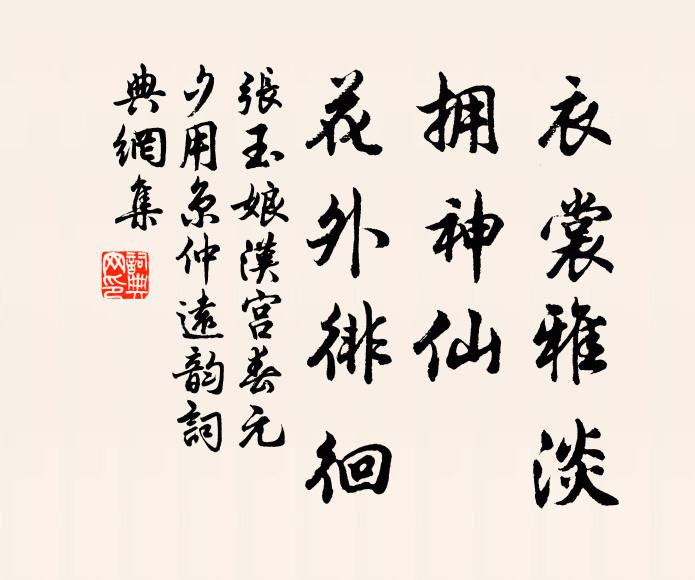 衣裳雅淡
拥神仙
花外徘徊
張玉娘漢宮春元
夕用京仲遠韵詞
典網集
詞典網印